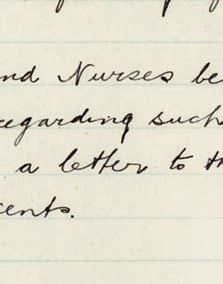 nd Nurses be
egarding such
a letter to th
ents.